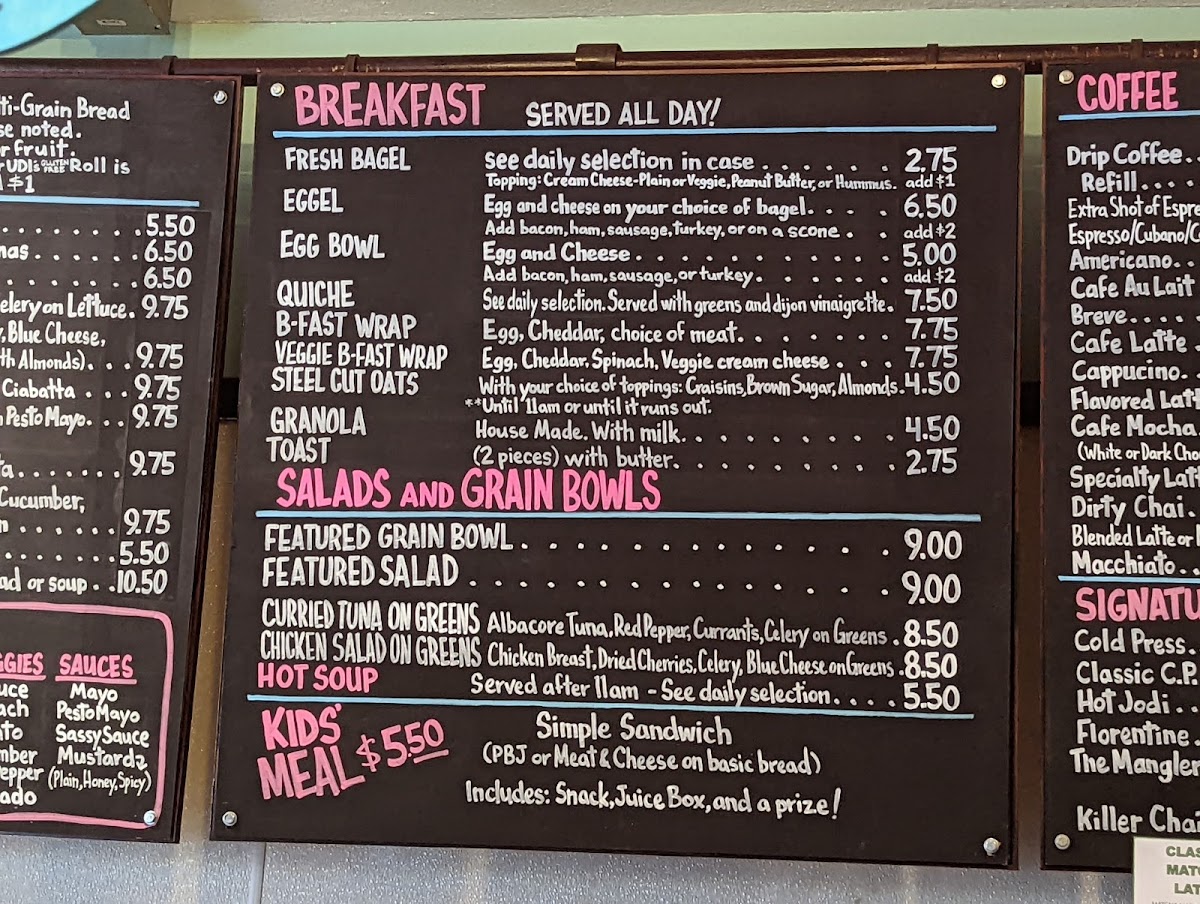 ti-Grain Bread
se noted.
r fruit.
r UDI's GLUTEN FREE Roll is
$1
. . . . . . . . 5.50
nas . . . . . . 6.50
. . . . . . . . 6.50
elery on Lettuce. 9.75
, Blue Cheese,
th Almonds). . . 9.75
Ciabatta . . . 9.75
Pesto Mayo. . . 9.75
ta. . . . . . . 9.75
Cucumber,
n . . . . . . 9.75
. . . . . . . 5.50
ad or soup . . 10.50
GGIES
uce
ach
to
mber
epper
ado
SAUCES
Mayo
Pesto Mayo
Sassy Sauce
Mustard
(Plain, Honey, Spicy)
BREAKFAST SERVED ALL DAY!
FRESH BAGEL see daily selection in case . . . . . . . 2.75
Topping: Cream Cheese-Plain or Veggie, Peanut Butter, or Hummus. add $1
EGGEL Egg and cheese on your choice of bagel. . . . 6.50
Add bacon, ham, sausage, turkey, or on a scone . . add $2
EGG BOWL Egg and Cheese . . . . . . . . . . . . 5.00
Add bacon, ham, sausage, or turkey . . . . . . . add $2
QUICHE See daily selection. Served with greens and dijon vinaigrette. 7.50
B-FAST WRAP Egg, Cheddar, choice of meat. . . . . . . 7.75
VEGGIE B-FAST WRAP Egg, Cheddar, Spinach, Veggie cream cheese . . . 7.75
STEEL CUT OATS With your choice of toppings: Craisins, Brown Sugar, Almonds. 4.50
**Until 11am or until it runs out.
GRANOLA House Made. With milk. . . . . . . . . . 4.50
TOAST (2 pieces) with butter. . . . . . . . . . 2.75
SALADS AND GRAIN BOWLS
FEATURED GRAIN BOWL . . . . . . . . . . . . . . 9.00
FEATURED SALAD . . . . . . . . . . . . . . . . 9.00
CURRIED TUNA ON GREENS Albacore Tuna, Red Pepper, Currants, Celery on Greens . 8.50
CHICKEN SALAD ON GREENS Chicken Breast, Dried Cherries, Celery, Blue Cheese on Greens . 8.50
HOT SOUP Served after 11am - See daily selection. . . . 5.50
KIDS' MEAL $5.50
Simple Sandwich
(PBJ or Meat & Cheese on basic bread)
Includes: Snack, Juice Box, and a prize!
COFFEE
Drip Coffee. .
Refill. . . .
Extra Shot of Espre
Espresso/Cubano/C
Americano. .
Cafe Au Lait
Breve. . . .
Cafe Latte .
Cappucino. .
Flavored Latt
Cafe Mocha.
(White or Dark Cho
Specialty Latt
Dirty Chai .
Blended Latte or
Macchiato. .
SIGNATU
Cold Press. .
Classic C.P.
Hot Jodi . .
Florentine .
The Mangler
Killer Chai
CLAS
MAT
LAT